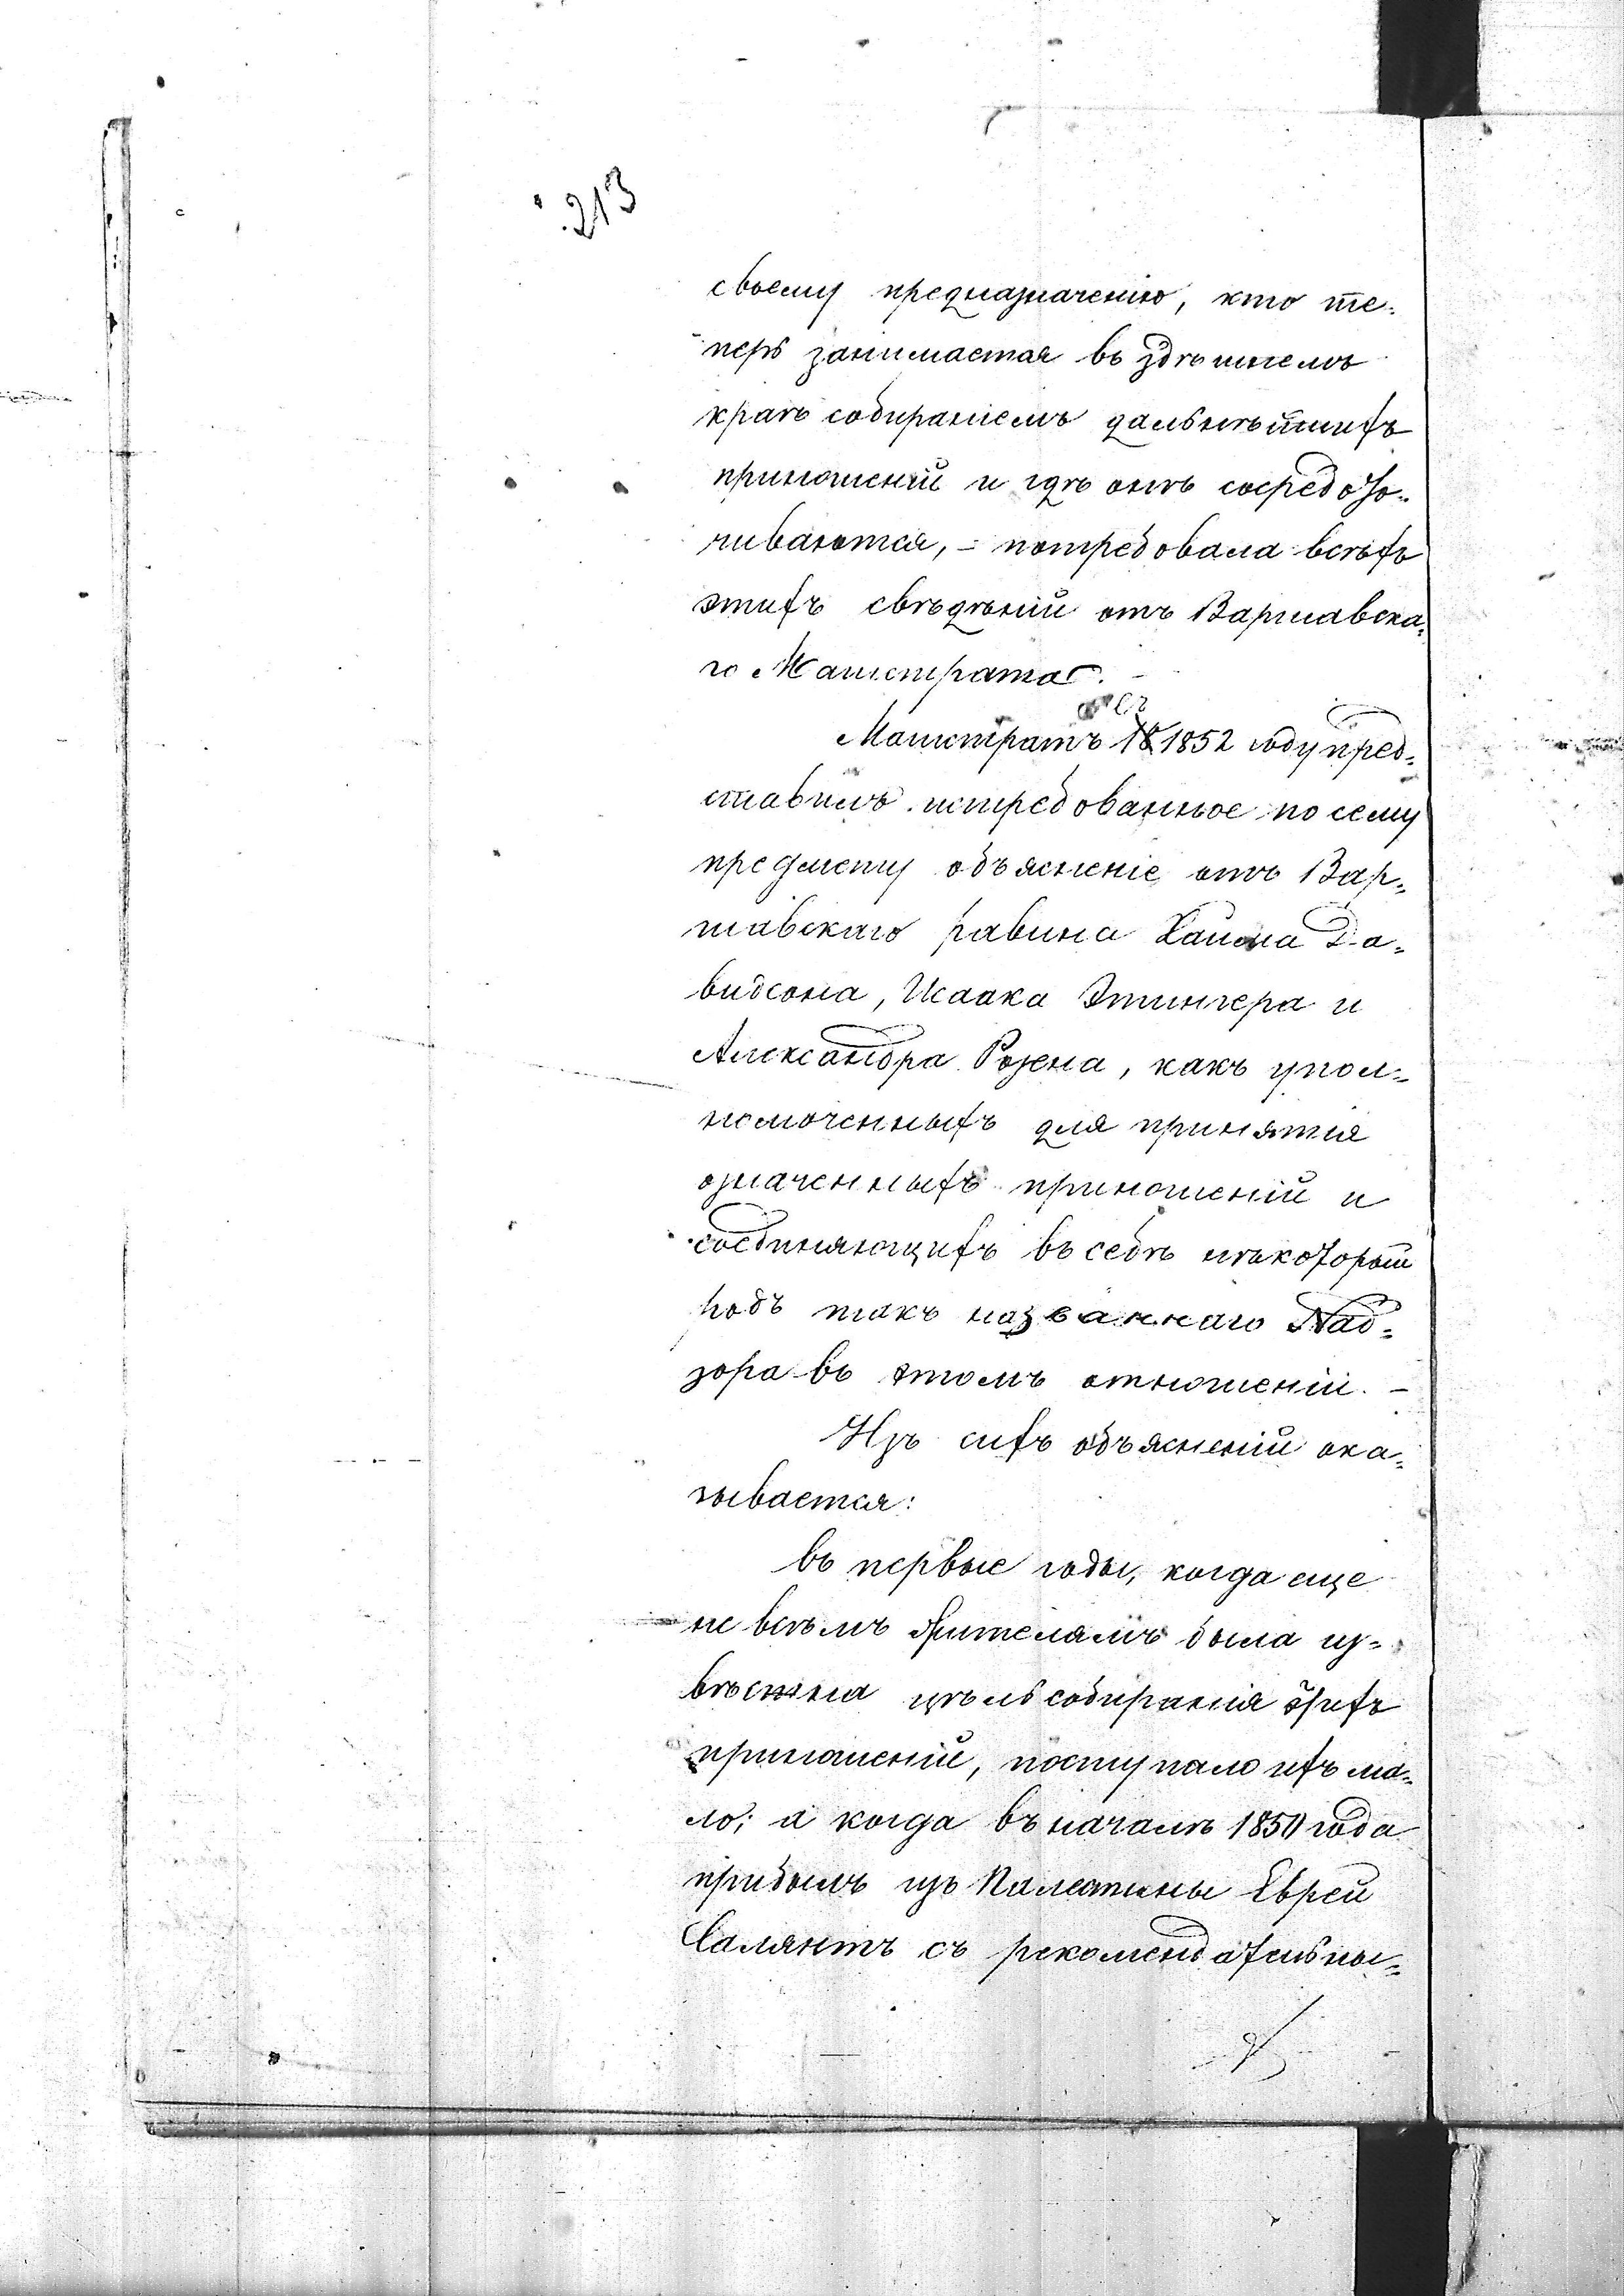 213
своему предназначенію, кто те-
перь занимается въ здѣшнемъ
краѣ собираніемъ дальнѣйшихъ
приношеній и гдѣ онѣ сосредото-
чиваются, - потребовала всѣхъ
этихъ свѣдѣній отъ Варшавска-
го Магистрата. -
Магистратъ въ 1852 году пред-
ставилъ истребованное по сему
предмету объясненіе отъ Вар-
шавскаго равина Хаима Да-
видсона, Исаака Этингера и
Александра Розена, какъ упол-
номоченныхъ для принятія
означенныхъ приношеній и
соединяющихъ въ себѣ нѣкоторый
родъ такъ названнаго Над-
зора въ этомъ отношеніи. -
Изъ сихъ объясненій ока-
зывается:
въ первые годы, когда еще
не всѣмъ жителямъ была из-
вѣстна цѣль собиранія этихъ
приношеній, поступало ихъ ма-
ло; а когда въ началѣ 1850 года
прибылъ изъ Палестины Еврей
Салянтъ съ рекомендательны-